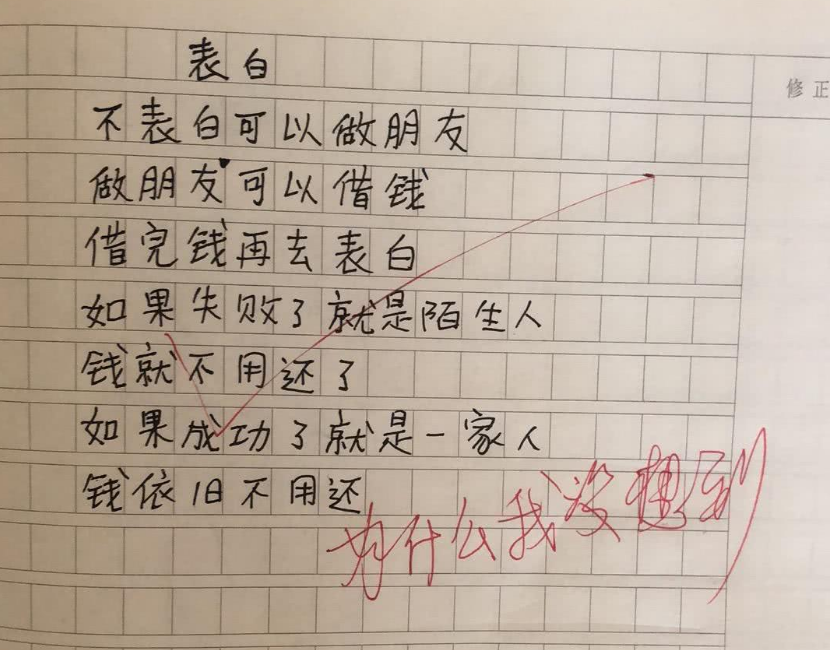 表白
修正
不表白可以做朋友
做朋友可以借钱
借完钱再去表白
如果失败了就是陌生人
钱就不用还了
如果成功了就是一家人
钱依旧不用还
为什么我没想到